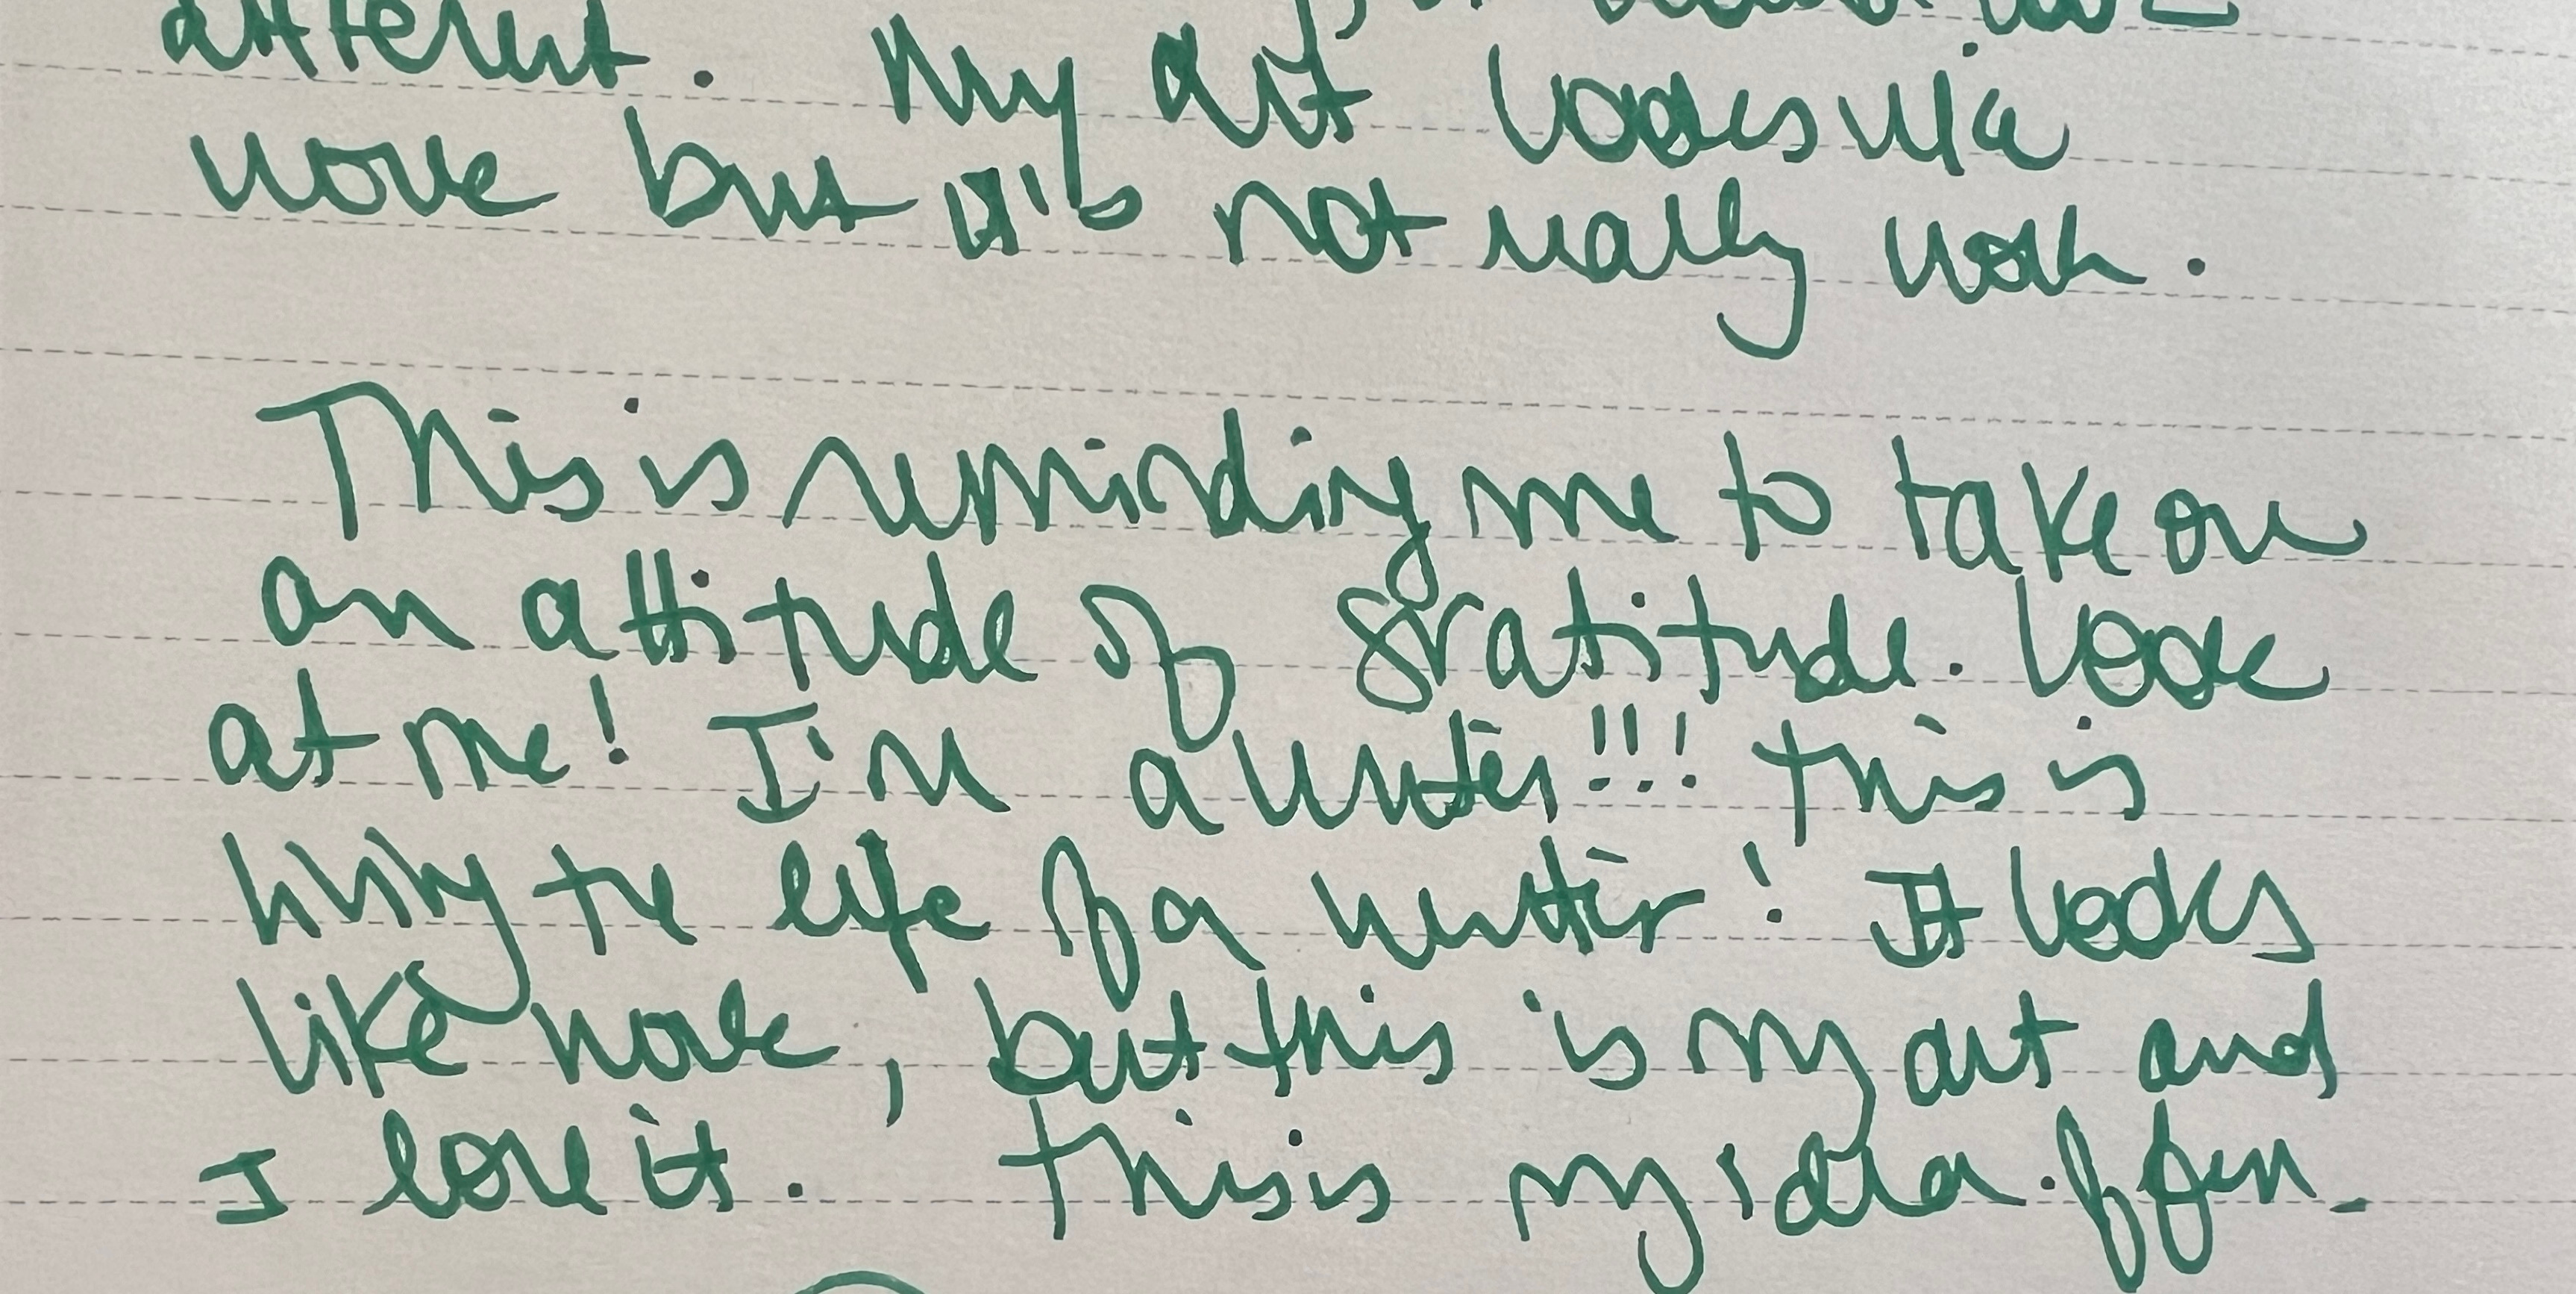 different. My art looks like
work but it's not really work.
This is reminding me to take on
an attitude of gratitude. Look
at me! I'm a writer!!! This is
living the life of a writer! It looks
like work, but this is my art and
I love it. This is my idea of fun.